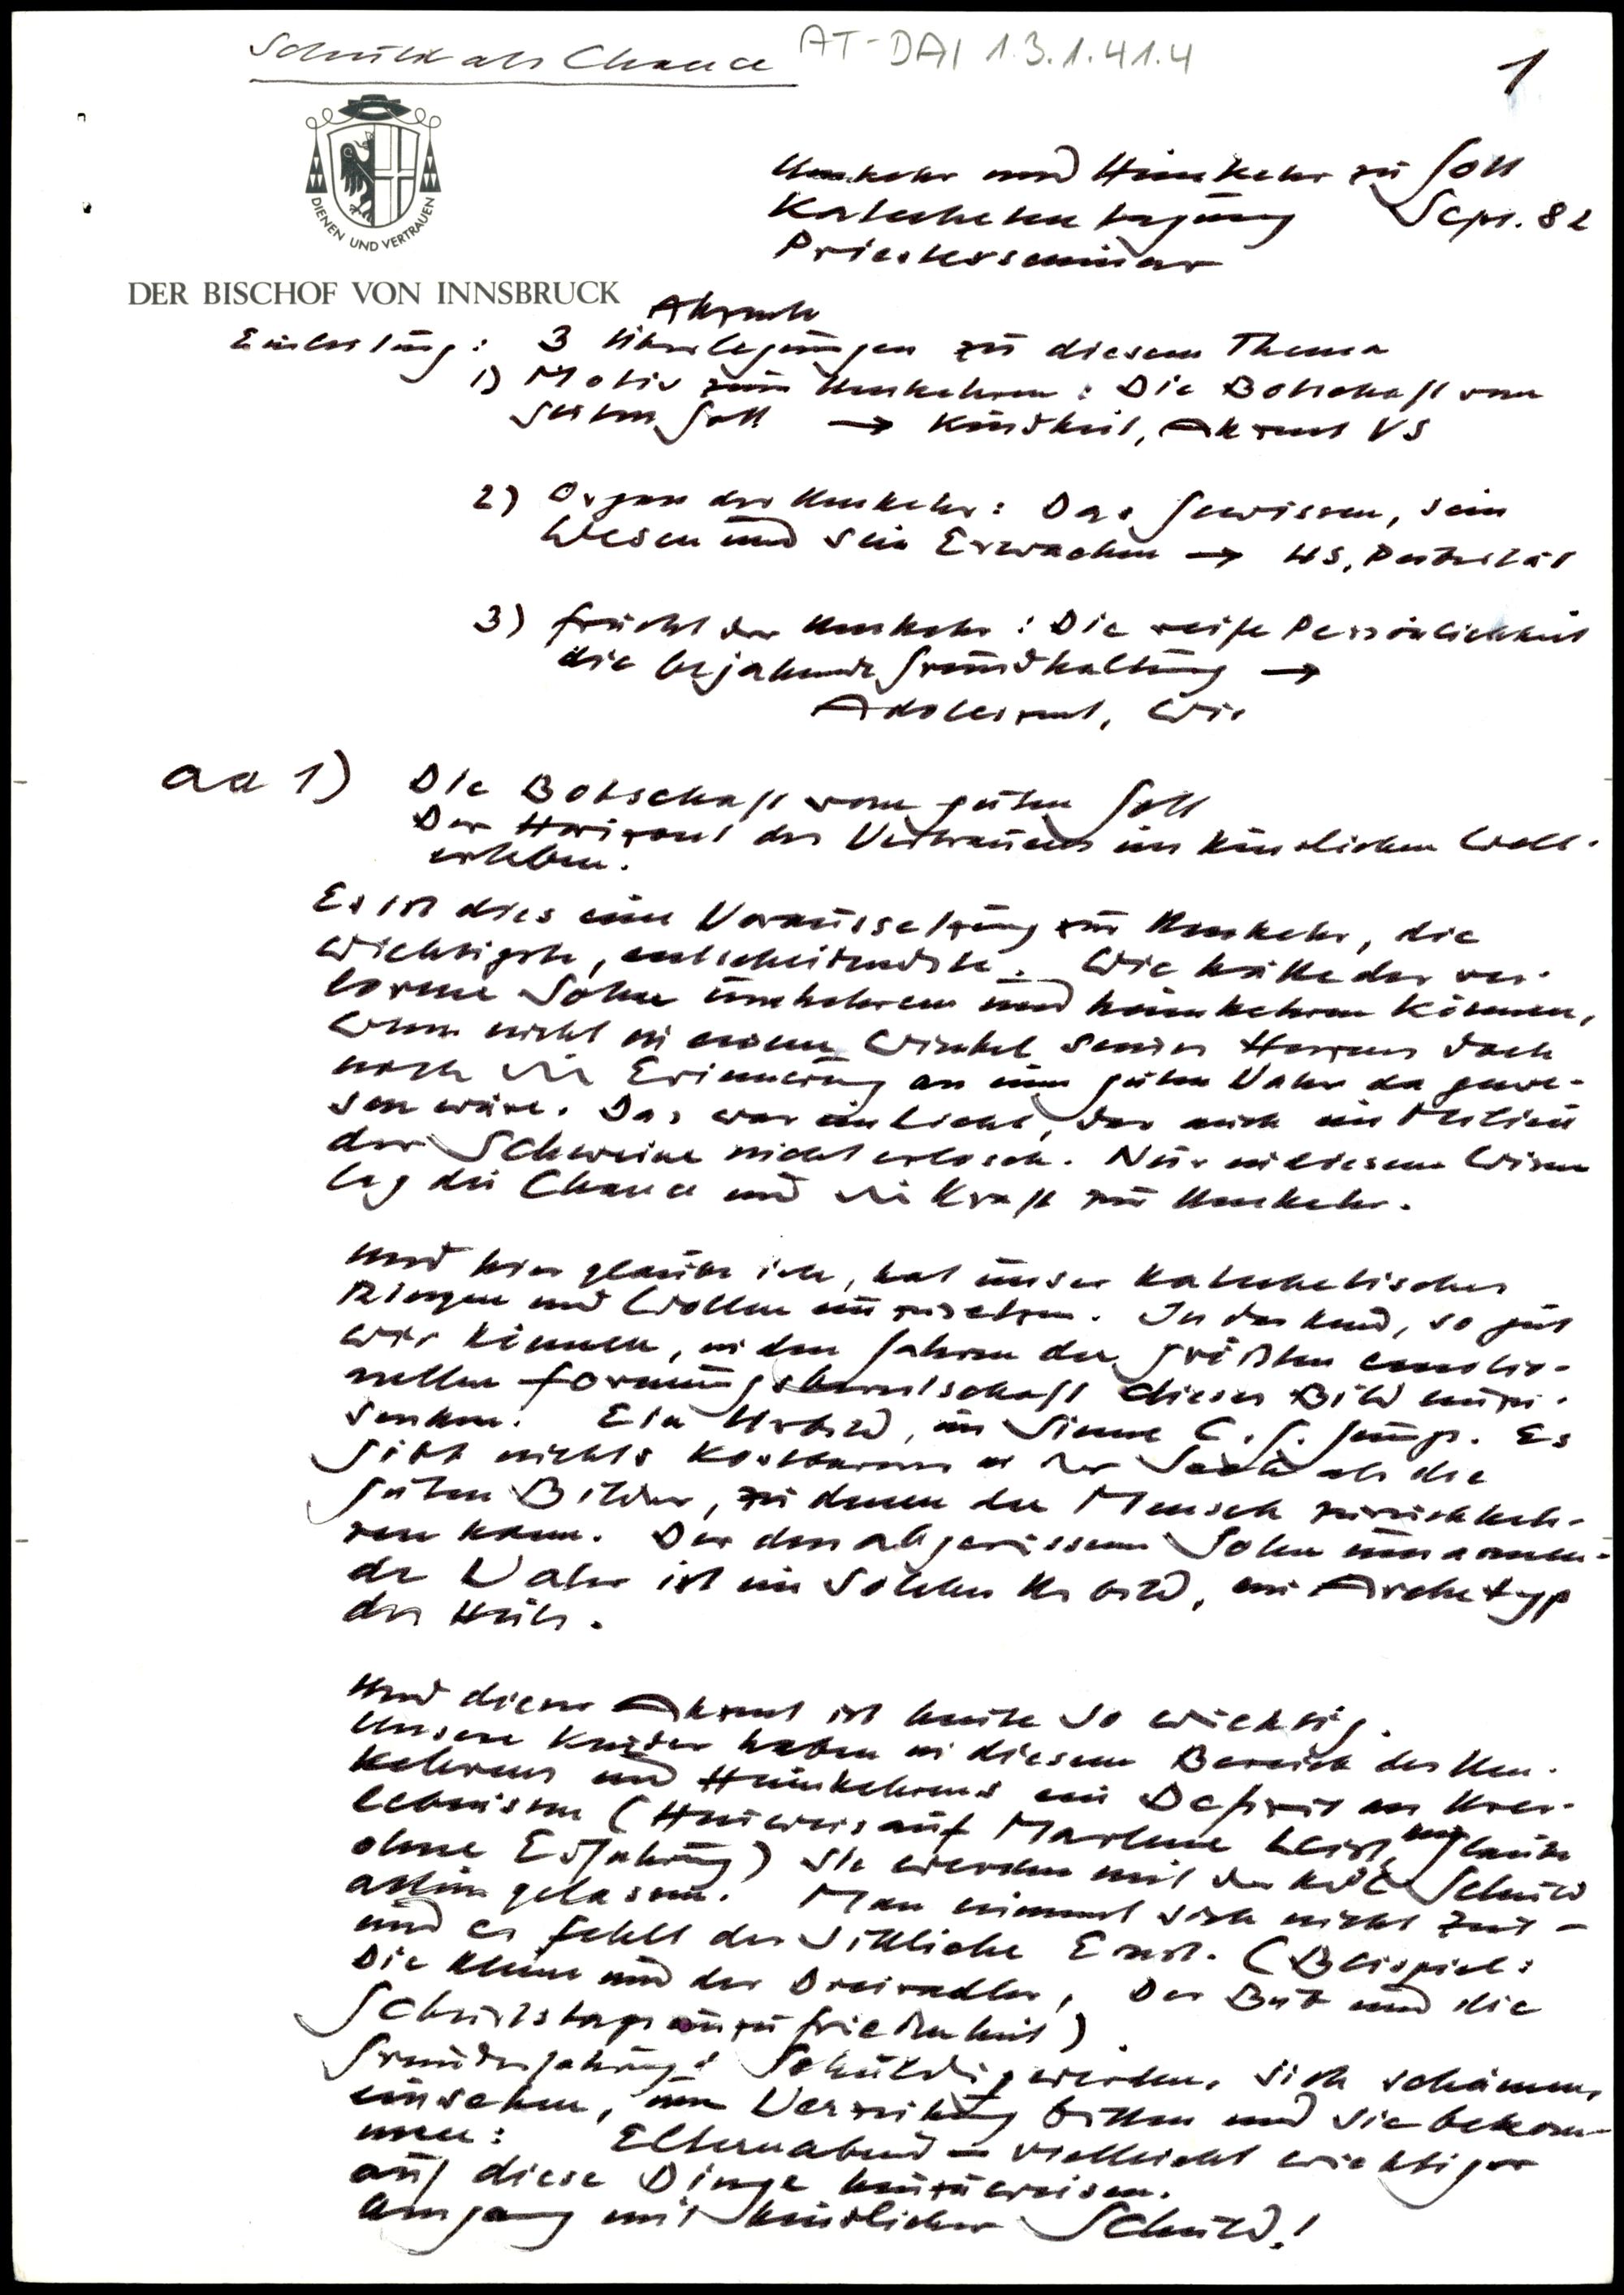 Schuld als Chance AT-DAI 1.3.1.41.4
1
Umkehr und Heimkehr zu Gott
Katechetentagung Sept. 82
Priesterseminar
DIENEN UND VERTRAUEN
DER BISCHOF VON INNSBRUCK
Akzente
Einleitung: 3 Überlegungen zu diesem Thema
1) Motiv zum Umkehren: Die Botschaft vom
guten Gott → Kindheit, Akzent VS
2) Organ der Umkehr: Das Gewissen, sein
Wesen und sein Erwachen → HS, Pubertät
3) Frucht der Umkehr: Die reife Persönlichkeit
die bejahende Grundhaltung →
Adoleszent, Wir
ad 1) Die Botschaft vom guten Gott
Der Horizont des Vertrauens im kindlichen Welt-
erleben.
Es ist dies eine Voraussetzung zur Umkehr, die
wichtigste, entscheidendste. Wie hätte der ver-
lorene Sohn umkehren und heimkehren können,
wenn nicht in einem Winkel seines Herzens doch
noch die Erinnerung an einen guten Vater da gewe-
sen wäre. Das war ein Licht, das auch im Milieu
der Schweine nicht erlosch. Nur in diesem Wissen
lag die Chance und die Kraft zur Umkehr.
Und hier glaube ich, hat unser katechetisches
Ringen und Wollen einzusetzen. In das Kind, so gut
wir können, in den Jahren der größten emotio-
nellen Formungsbereitschaft dieses Bild einzu-
senken. Ein Urbild, im Sinne C. G. Jungs. Es
gibt nichts Kostbareres in der Seele als die
guten Bilder, zu denen der Mensch zurückkeh-
ren kann. Der den abgerissenen Sohn umarmen-
de Vater ist ein solches Urbild, ein Archetyp
des Heils.
Und dieser Akzent ist heute so wichtig.
Unsere Kinder haben in diesem Bereich des Um-
kehrens und Heimkehrens ein Defizit an Urer-
lebnissen (Hinweis auf Marlene Leist, kein Glaube
ohne Erfahrung) Sie werden mit der Schuld
allein gelassen. Man nimmt sich nicht Zeit –
und es fehlt der sittliche Ernst. (Beispiel:
Die Kleine und der Dreiradler, Der Bub und die
Geburtstagsunzufriedenheit)
Grunderfahrung: Schuldig werden, sich schämen,
einsehen, um Verzeihung bitten und sie bekom-
men: Elternabend – vielleicht wichtiger
auf diese Dinge hinzuweisen.
Umgang mit kindlicher Schuld!